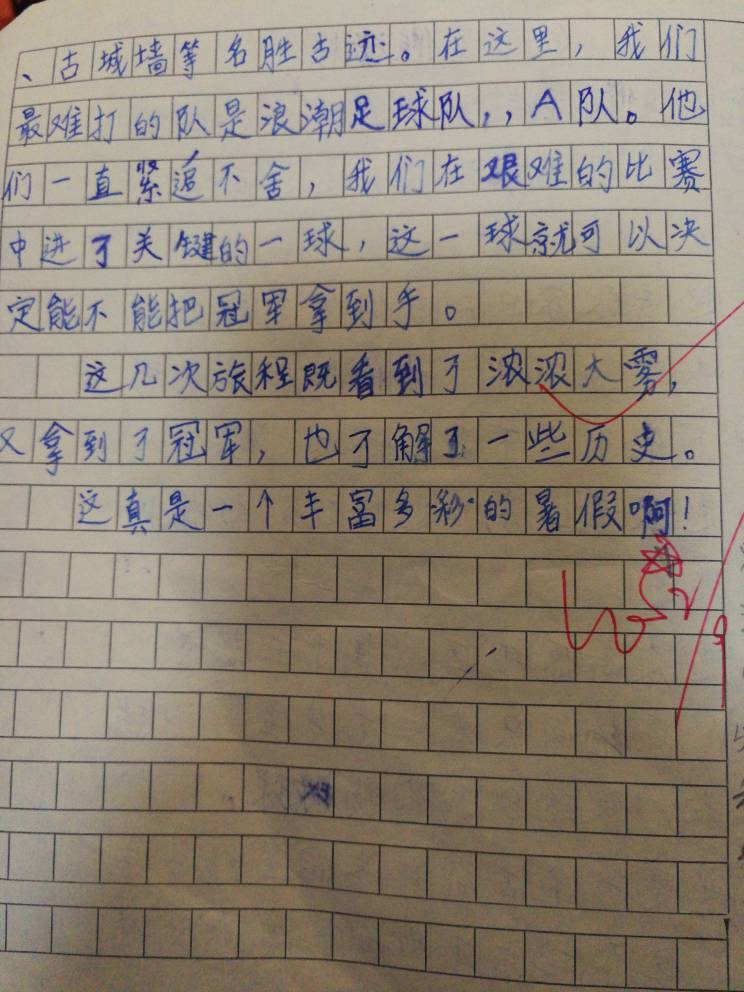 、古城墙等名胜古迹。在这里，我们
最难打的队是浪潮足球队，，A队。他
们一直紧追不舍，我们在艰难的比赛
中进了关键的一球，这一球就可以决
定能不能把冠军拿到手。
这几次旅程既看到了浓浓大雾，
又拿到了冠军，也了解了一些历史。
这真是一个丰富多彩的暑假啊！